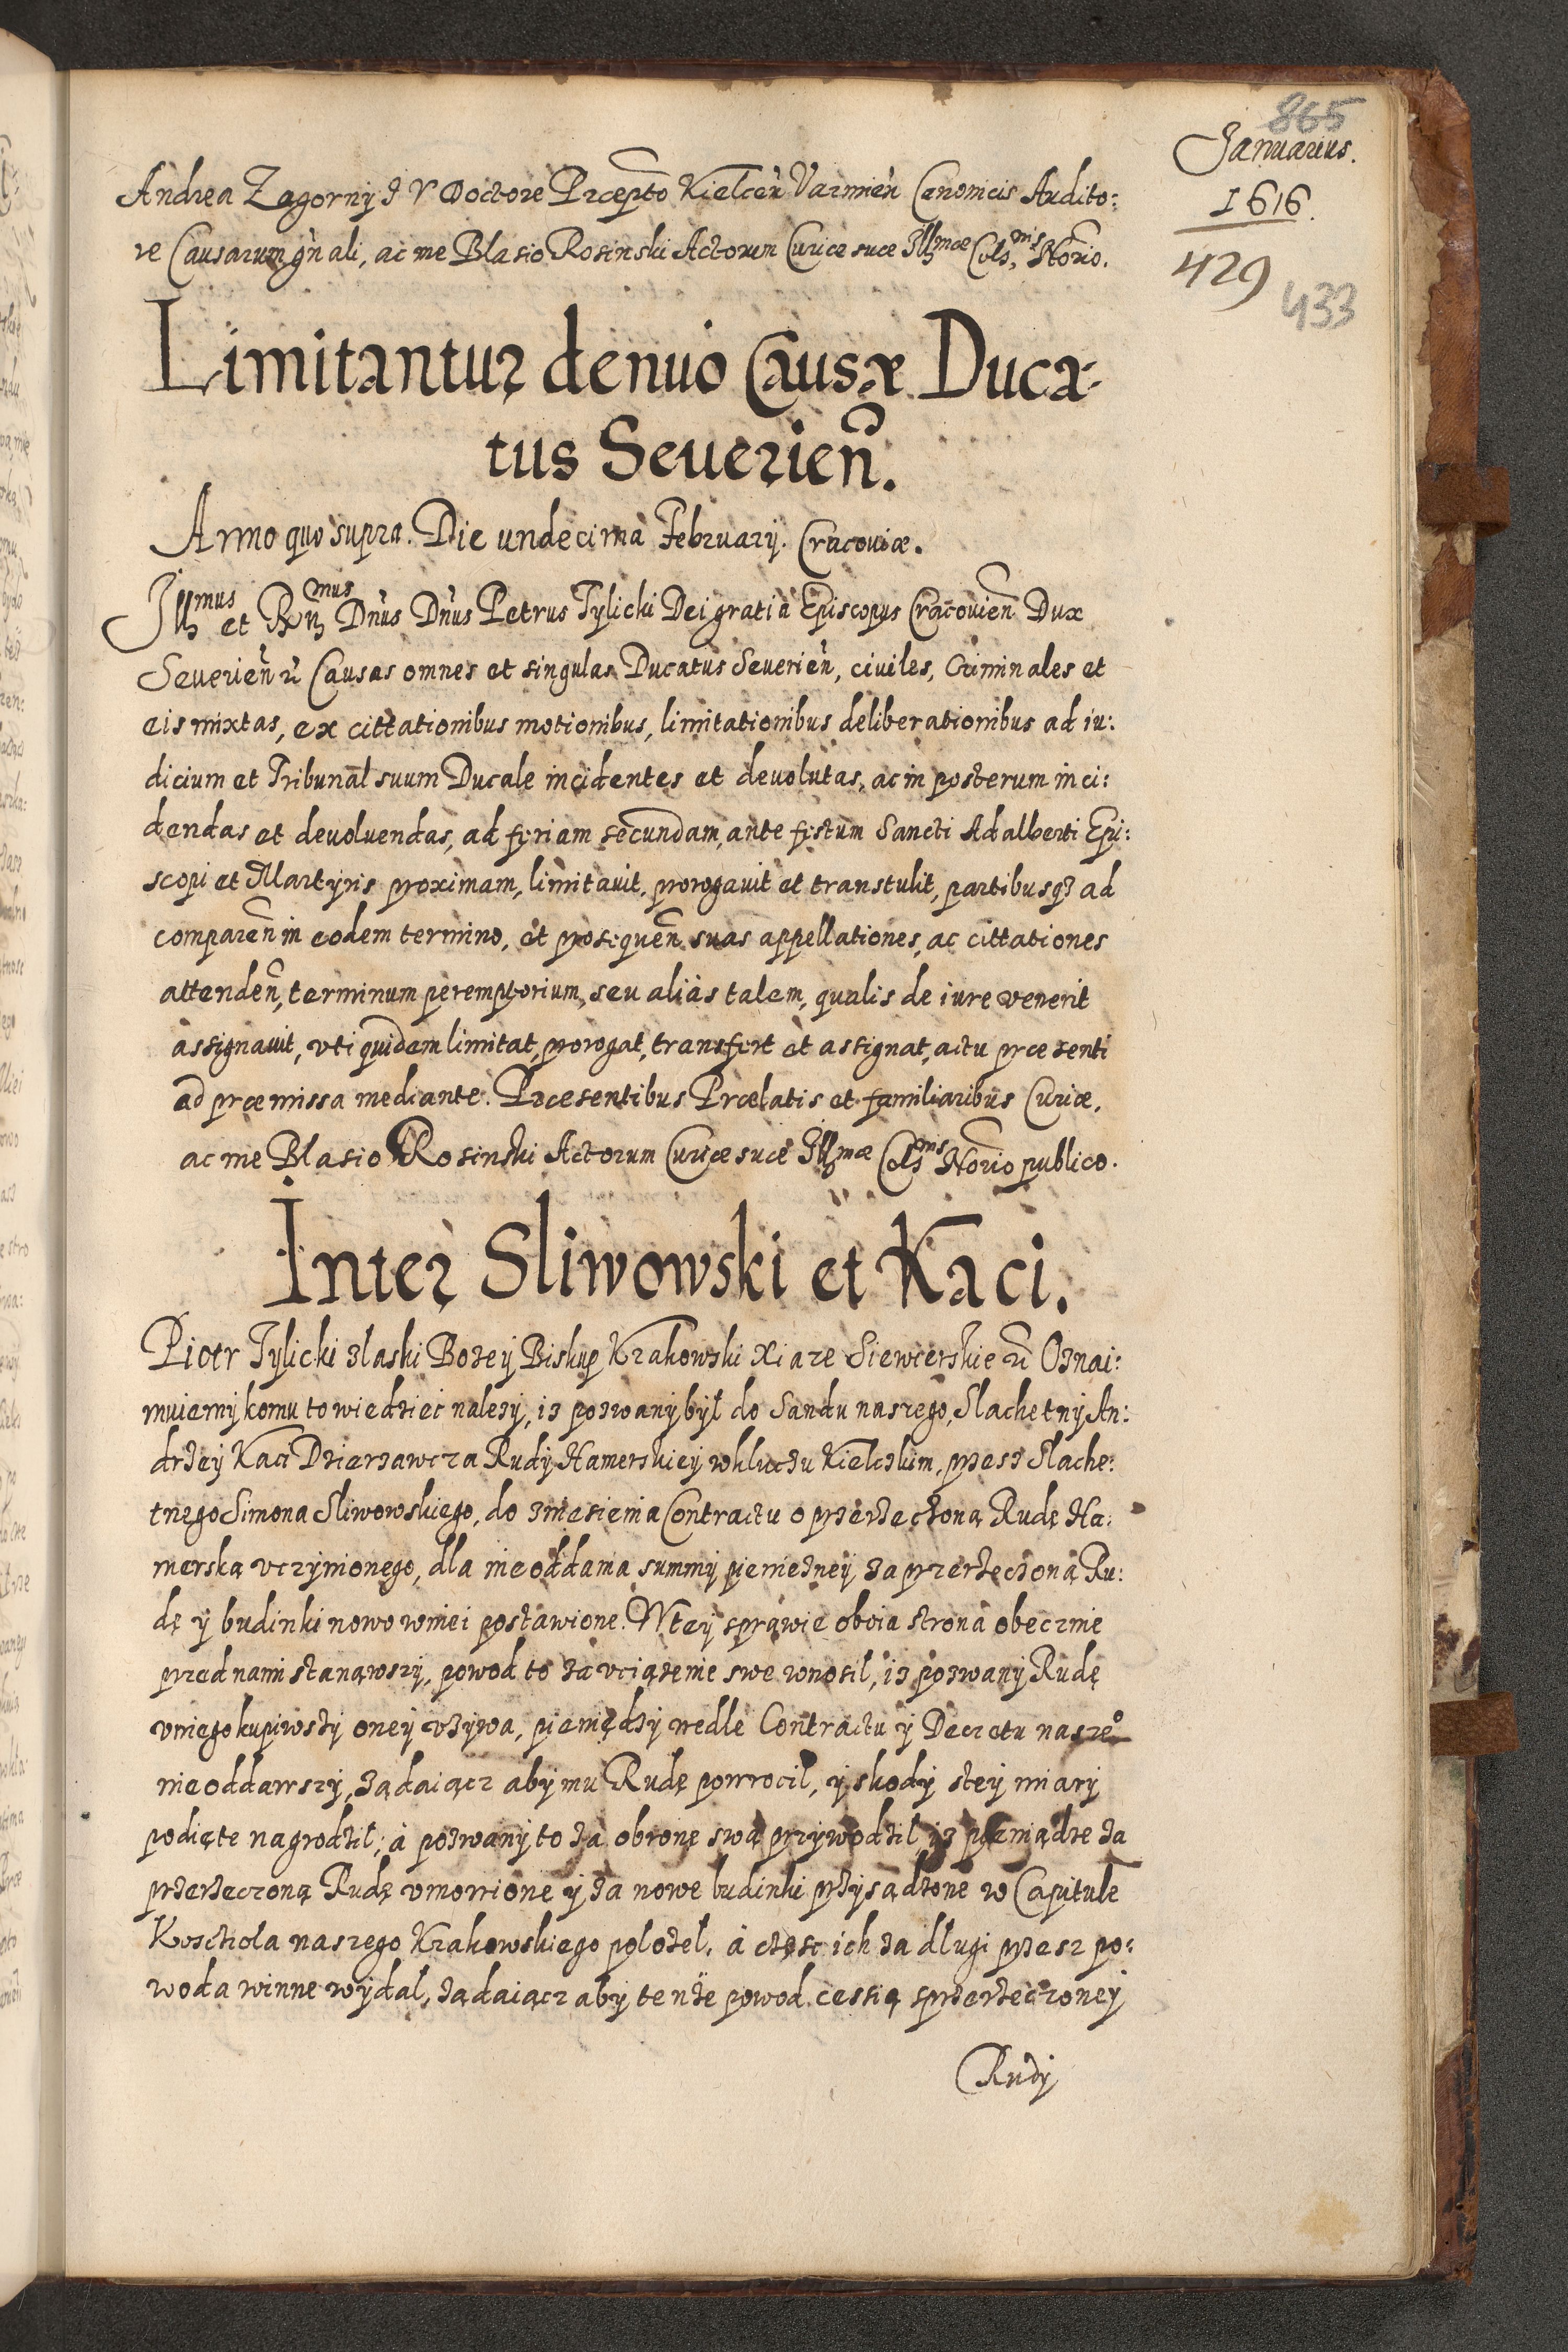 865
Januarius.
1616.
429
433
Andrea Zagorny J V Doctore Præpto Kielceñ Varmieñ Canonicis Audito:
re Causarum gñali, ac me Blasio Rosinski Actorum Curiæ suæ Illmæ Cels.nis Norio.
Limitantur denuo Causæ Duca-
tus Severien.
Anno quo supra. Die undecima February. Cracoviæ.
Illmus et Rñmus Dñus Dñus Petrus Tylicki Dei gratia Episcopus Cracovieñ Dux
Severieñ Causas omnes et singulas Ducatus Severieñ, civiles, Criminales et
eis mixtas, ex cittationibus motionibus, limitationibus deliberationibus ad iu:
dicium et Tribunal suum Ducale incidentes et devolutas, ac in posterum inci:
dendas et devoluendas, ad feriam secundam, ante festum Sancti Adalberti Epi:
scopi et Martyris proximam, limitavit, prorogavit et transtulit, partibusqз ad
compareñ in eodem termino, et prosequeñ suas appellationes, ac cittationes
attendeñ, terminum peremptorium, seu alias talem, qualis de iure venerit
assignauit, vti quidem limitat, prorogat, transfert et assignat, actu præsenti
ad præmissa mediante. Præsentibus Prælatis et familiaribus Curiæ,
ac me Blasio Rosinski Actorum Curiæ suæ Illmæ Celsnis Norio publico.
Inter Sliwowski et Kaci.
Piotr Tylicki zlaski Bozey Biskup Krakowski Xiaze Siewierskie Oznai:
muiemy komu to wiedziec nalezy, iz pozwany był do Sandu naszego, Slachetny An:
drzey Kaci Dzierzawcza Rudy Hamerskiey wkluczu Kielczkim, przesz Slache:
tnego Simona Sliwowskiego, do zniesienia Contractu o przerzeczoną Rudę Ha:
merską vczynionego, dla nieoddania summy pieniezney za przerzeczoną Ru:
dę y budinki nowo wniei postawione. Wtey sprawie oboia strona obecznie
przed nami stanąwszy, powod to za vciązenie swe wnosil, iz pozwany Rudę
vniego kupiwszy oney vzywa, pieniędzy wedle Contractu y Decretu naszeo
nieoddawszy, ządaiącz aby mu Rudę powrocil, y skody stey miary
podięte nagrodzil; a pozwany to za obronę swą przywodzil iz pieniądze za
przerzeczoną Rudę vmowione y za nowe budinki przysądzone w Capitule
Koschiola naszego Krakowskiego polozel, a częsc ich za dlugi przesz po:
woda winne wydal, ządaiącz aby tenze powod cessią sprzerzeczoney
Rudy